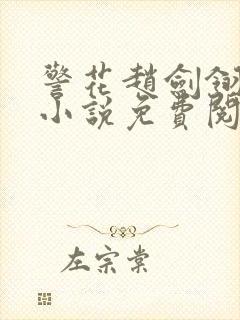 警花趙劍釵
小說免費閱
左宗棠